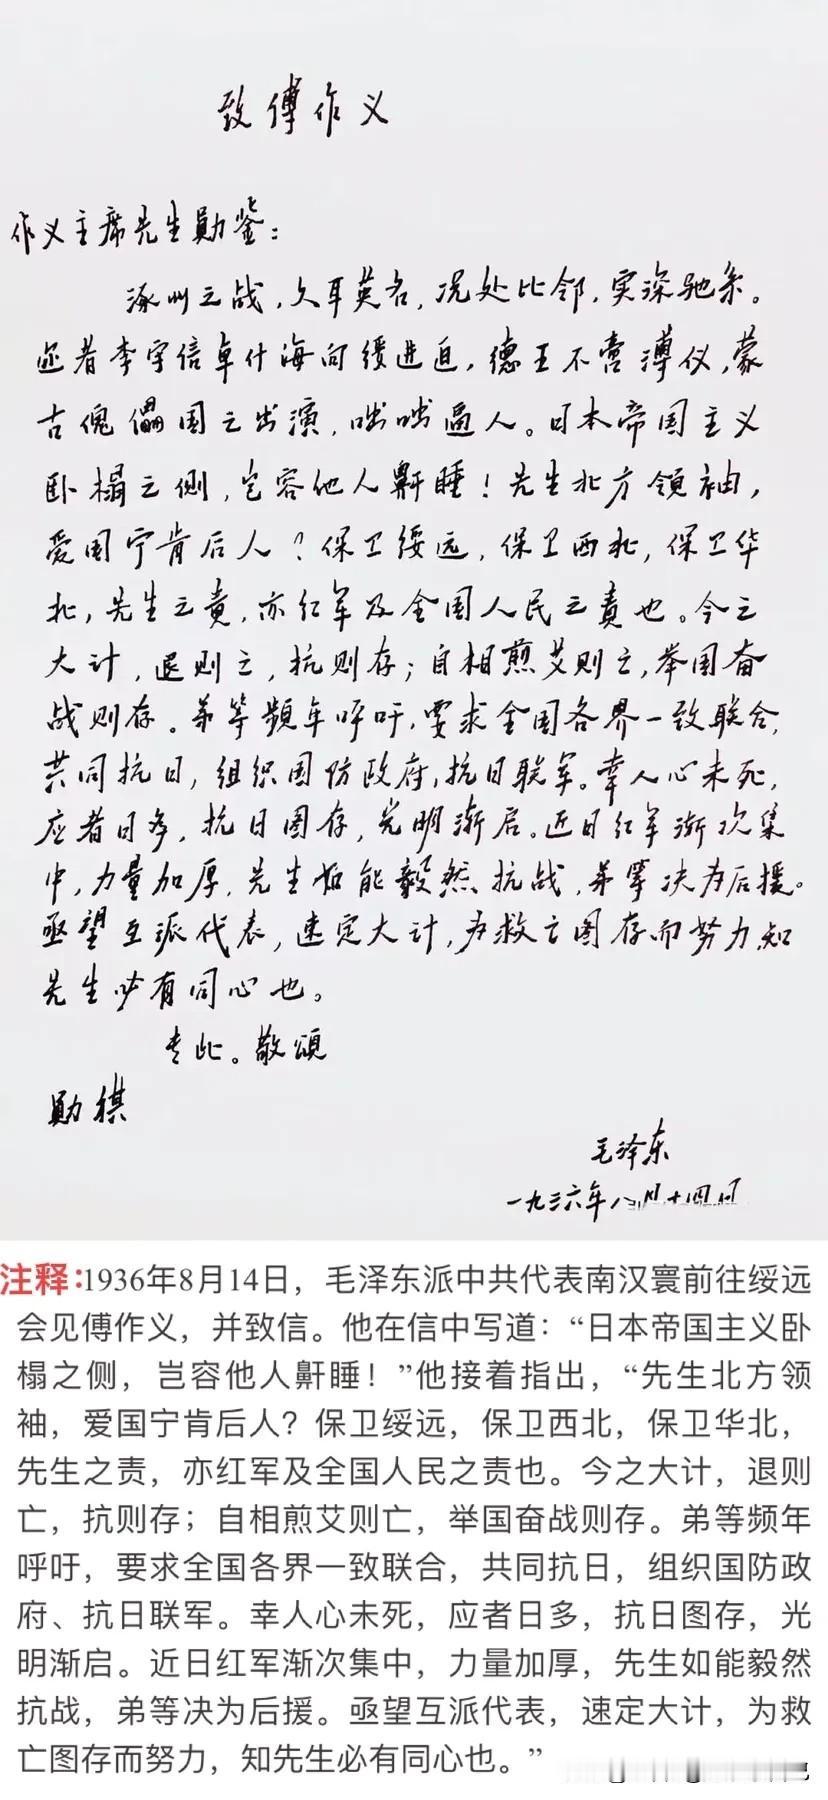 致傅作义
作义主席先生勋鉴：
涿州之战，久耳英名，况处比邻，实深驰系。
迩者李守信卓什海向绥进迫，德王不啻溥仪，蒙
古傀儡国之出演，咄咄逼人。日本帝国主义
卧榻之侧，岂容他人鼾睡！先生北方领袖，
爱国宁肯后人？保卫绥远，保卫西北，保卫华
北，先生之责，亦红军及全国人民之责也。今之
大计，退则亡，抗则存；自相煎艾则亡，举国奋
战则存。弟等频年呼吁，要求全国各界一致联合，
共同抗日，组织国防政府，抗日联军。幸人心未死，
应者日多，抗日图存，光明渐启。近日红军渐次集
中，力量加厚，先生如能毅然抗战，弟等决为后援。
亟望互派代表，速定大计，为救亡图存而努力，知
先生必有同心也。
专此。敬颂
勋祺
毛泽东
一九三六年八月十四日
注释：1936年8月14日，毛泽东派中共代表南汉寰前往绥远
会见傅作义，并致信。他在信中写道：“日本帝国主义卧
榻之侧，岂容他人鼾睡！”他接着指出，“先生北方领
袖，爱国宁肯后人？保卫绥远，保卫西北，保卫华北，
先生之责，亦红军及全国人民之责也。今之大计，退则
亡，抗则存；自相煎艾则亡，举国奋战则存。弟等频年
呼吁，要求全国各界一致联合，共同抗日，组织国防政
府、抗日联军。幸人心未死，应者日多，抗日图存，光
明渐启。近日红军渐次集中，力量加厚，先生如能毅然
抗战，弟等决为后援。亟望互派代表，速定大计，为救
亡图存而努力，知先生必有同心也。”